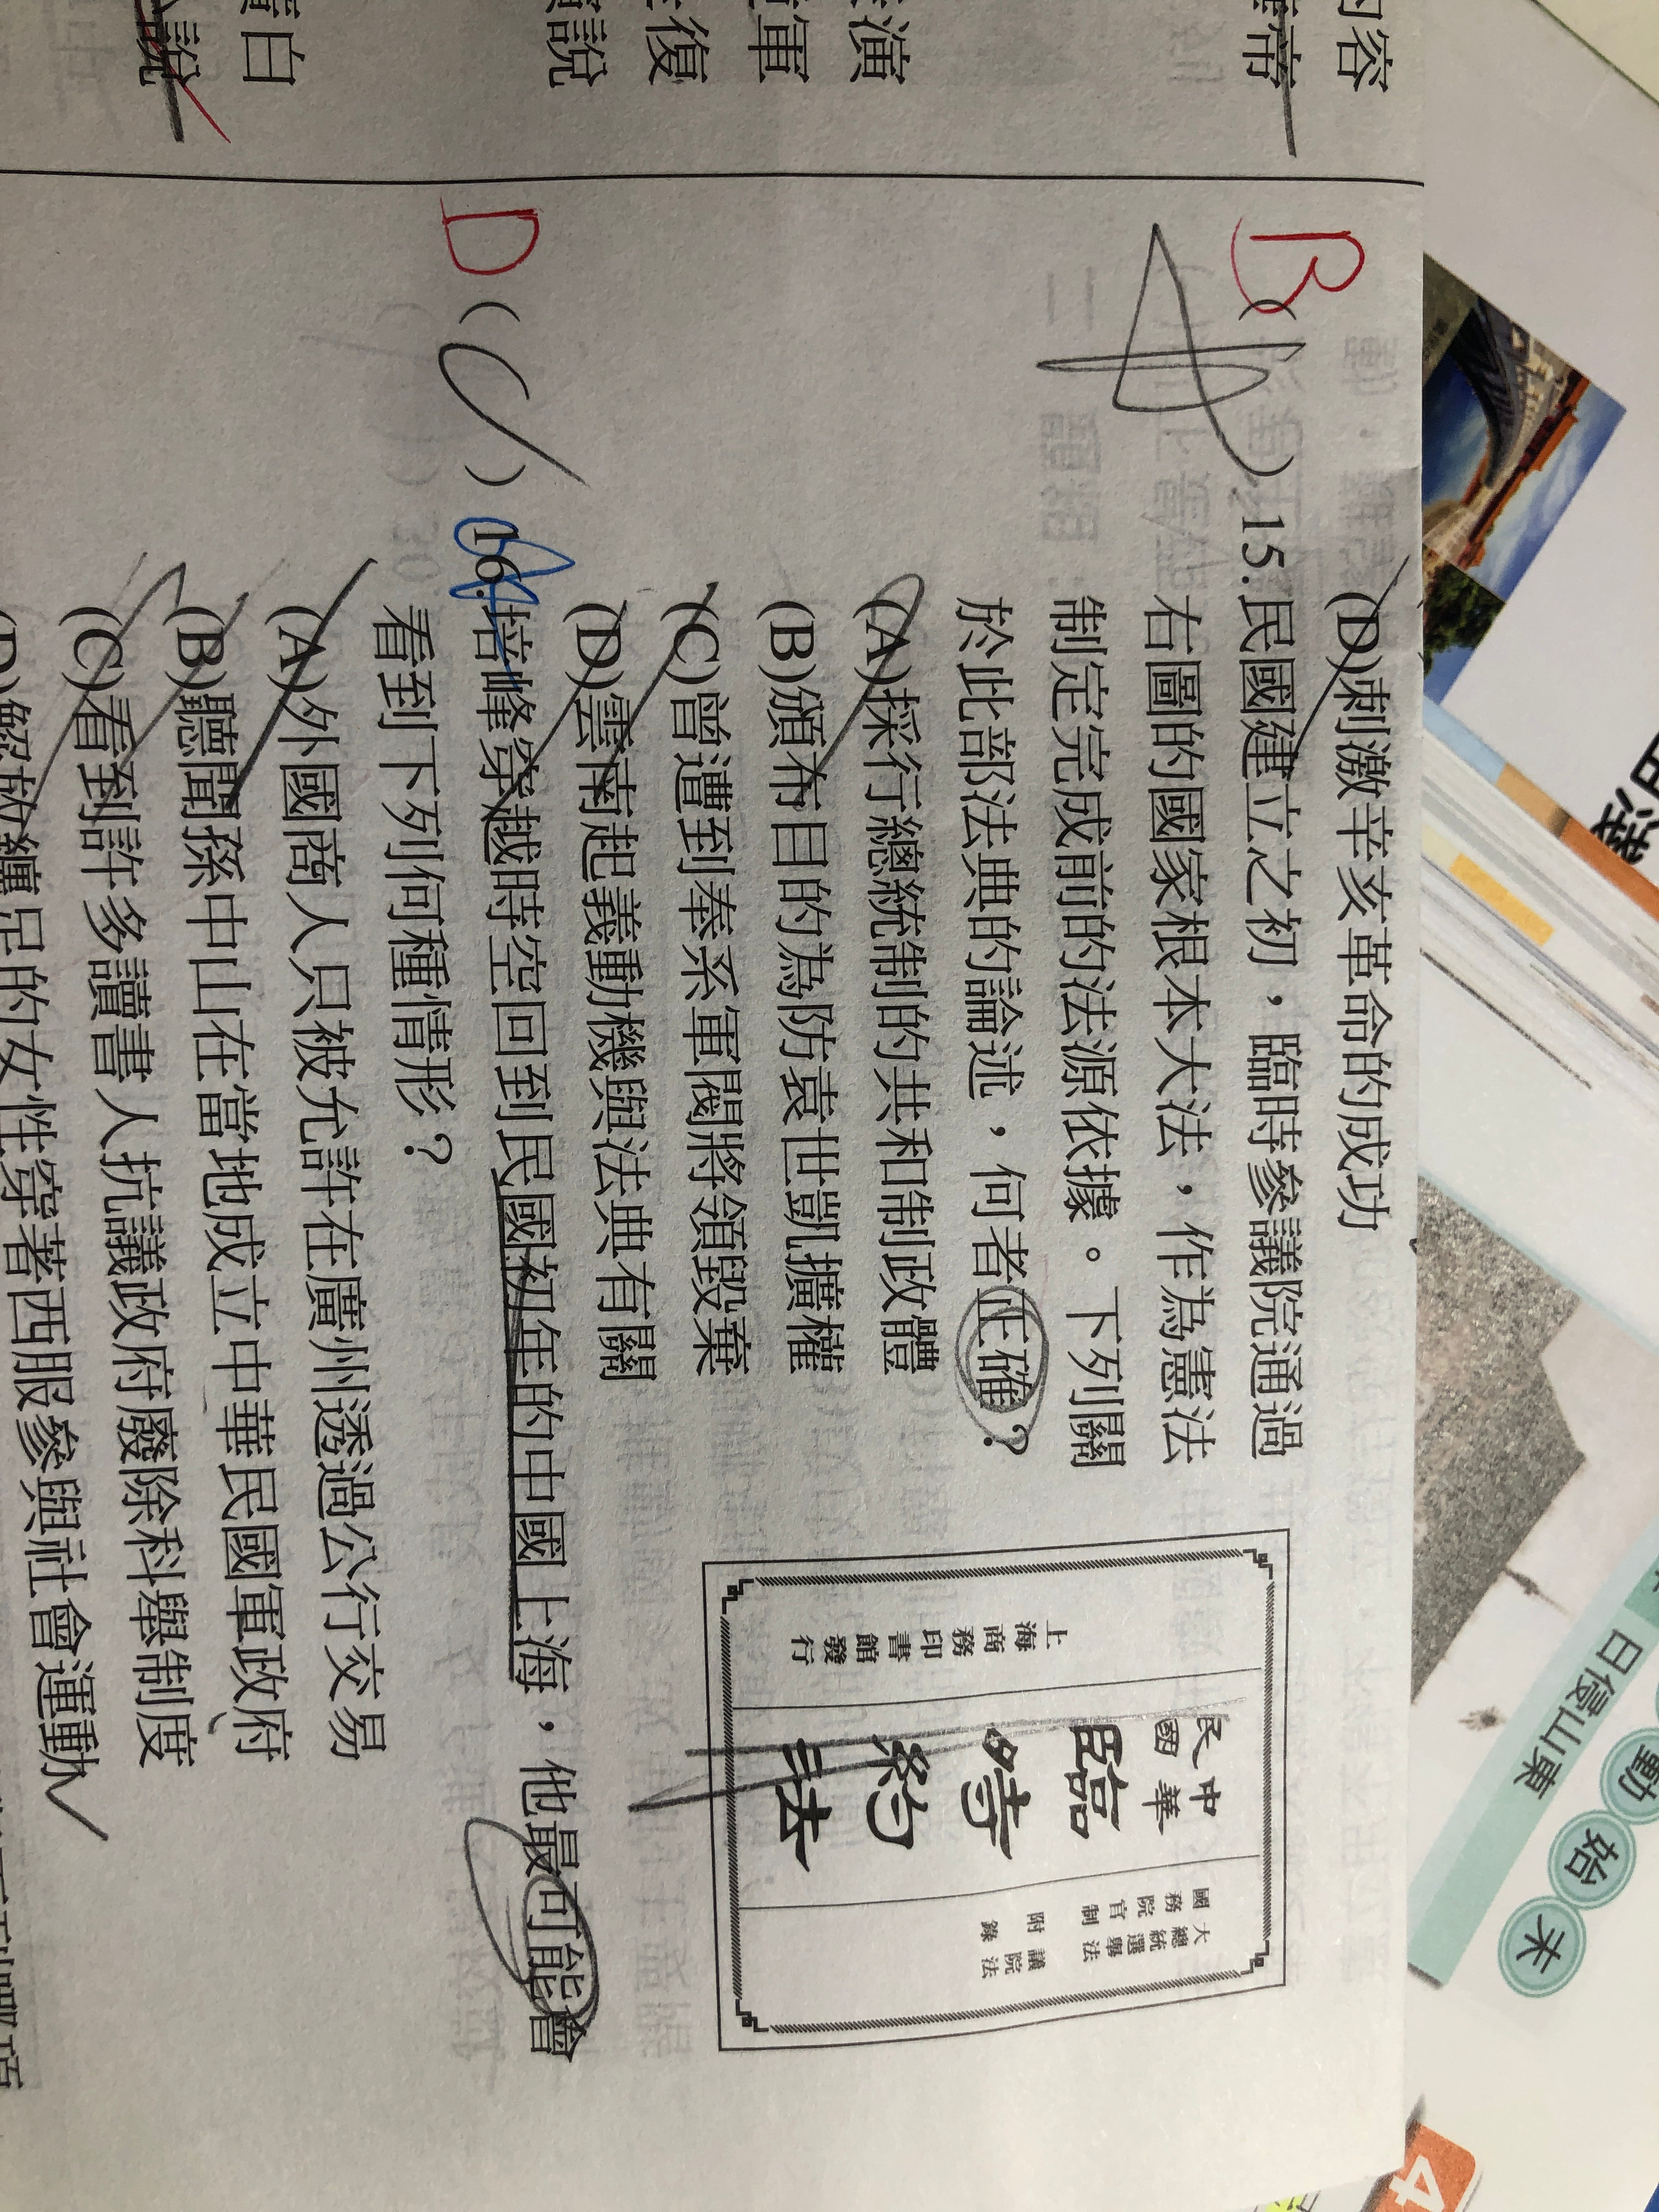 內容
演
軍
復
說
白
說
(D)刺激辛亥革命的成功
B
( A )15.民國建立之初，臨時參議院通過
右圖的國家根本大法，作為憲法
制定完成前的法源依據。下列關
於此部法典的論述，何者正確？
(A)採行總統制的共和制政體
(B)頒布目的為防袁世凱擴權
(C)曾遭到奉系軍閥將領毀棄
(D)雲南起義動機與法典有關
中華
民國
臨時約法
大總統選舉法
國務院官制
議院法
附錄
上海商務印書館發行
D
( C )16.培峰穿越時空回到民國初年的中國上海，他最可能會
看到下列何種情形？
(A)外國商人只被允許在廣州透過公行交易
(B)聽聞孫中山在當地成立中華民國軍政府
(C)看到許多讀書人抗議政府廢除科舉制度
(D)解放纏足的女性穿著西服參與社會運動
日侵山東
動始末
4